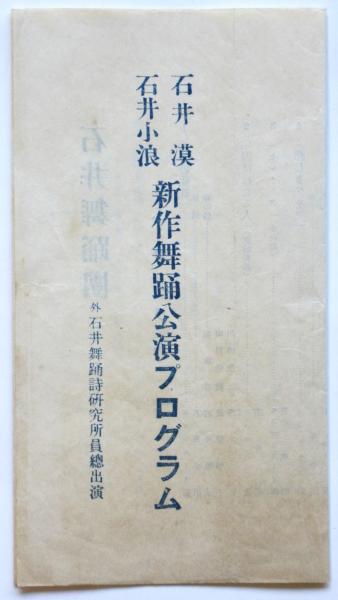 石井漠
石井小浪
新作舞踊公演プログラム
外石井舞踊詩研究所員總出演
石井舞踊團